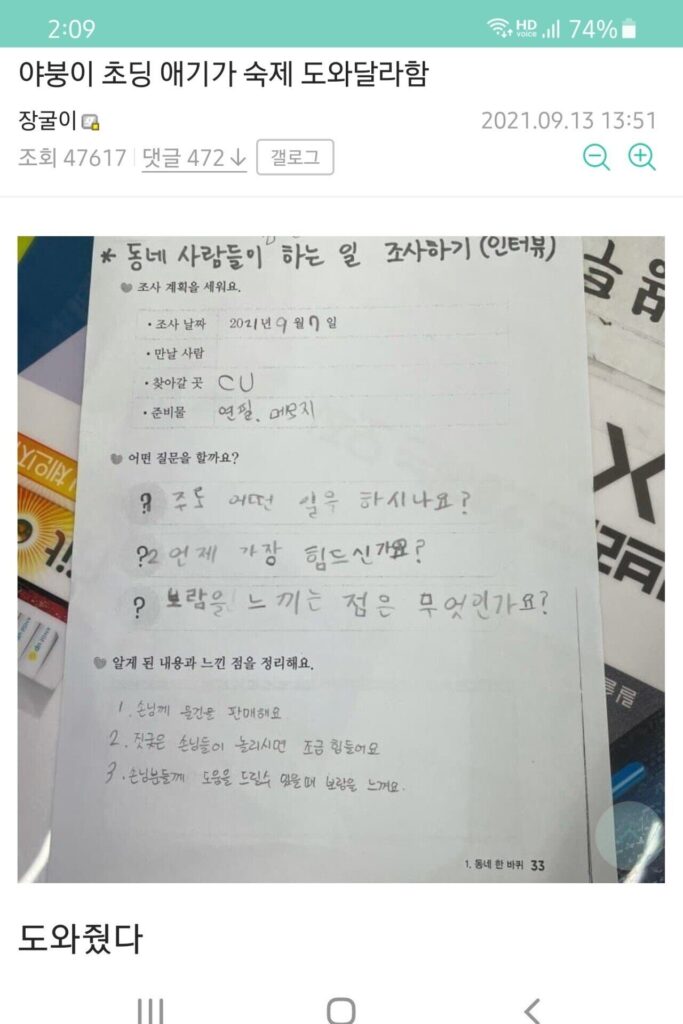 2:09 HD voice 74%
야붕이 초딩 애기가 숙제 도와달라함
장굴이 2021.09.13 13:51
조회 47617 댓글 472↓ 갤로그
* 동네 사람들이 하는 일 조사하기 (인터뷰)
조사 계획을 세워요.
• 조사 날짜 2021년 9월 7일
• 만날 사람
• 찾아갈 곳 CU
• 준비물 연필, 메모지
어떤 질문을 할까요?
? 주로 어떤 일을 하시나요?
?2 언제 가장 힘드신가요?
? 보람을 느끼는 점은 무엇인가요?
알게 된 내용과 느낀 점을 정리해요.
1. 손님께 물건을 판매해요
2. 짓궂은 손님들이 놀리시면 조금 힘들어요
3. 손님분들께 도움을 드릴수 있을때 보람을 느껴요.
1. 동네 한 바퀴 33
도와줬다